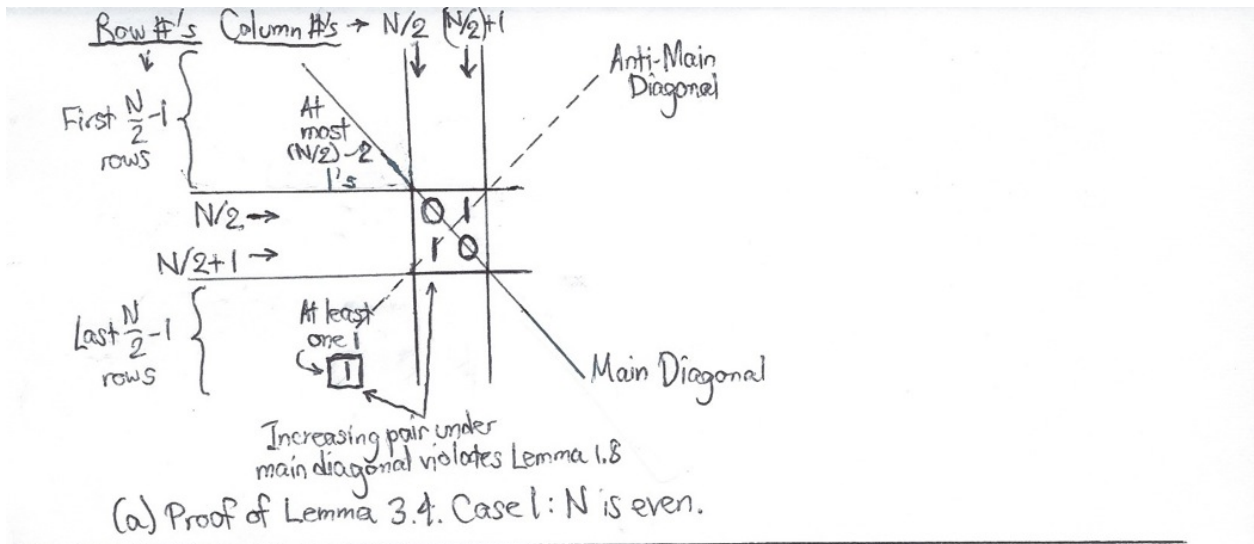 Row #'s Column #'s → N/2 (N/2)+1
Anti-Main
Diagonal
First N/2 -1
rows
At
most
(N/2)-2
1's
N/2 →
0 1
N/2+1 →
1 0
Last N/2 -1
rows
At least
one 1
1
Main Diagonal
Increasing pair under
main diagonal violates Lemma 1.8
(a) Proof of Lemma 3.4. Case 1: N is even.